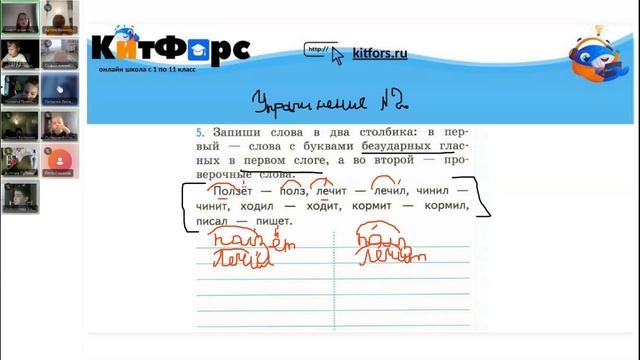 КитФорс
онлайн школа с 1 по 11 класс
http://
kitfors.ru
Упражнение №2
5. Запиши слова в два столбика: в пер-
вый — слова с буквами безударных глас-
ных в первом слоге, а во второй — про-
верочные слова.
Ползёт — полз, лечит — лечил, чинил —
чинит, ходил — ходит, кормит — кормил,
писал — пишет.
ползёт полз
лечил лечит